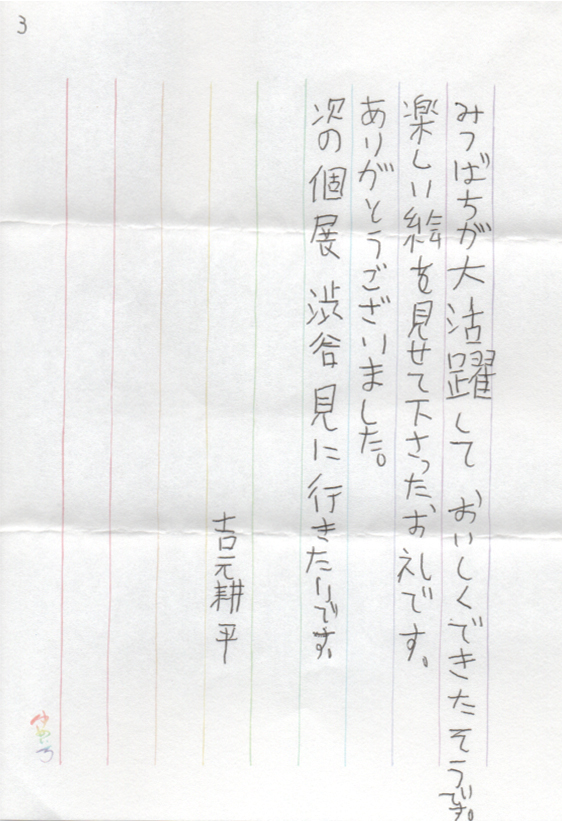 3
みつばちが大活躍して おいしくできたそうです。
楽しい絵を見せて下さったお礼です。
ありがとうございました。
次の個展 渋谷 見に行きたいです。
吉元耕平